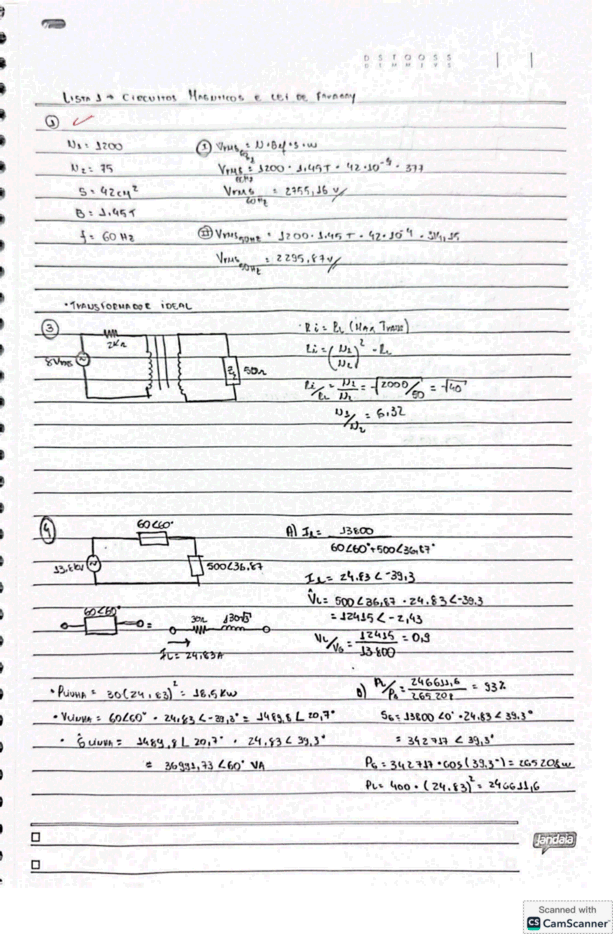 D S T Q Q S S
D L M M J V S
LISTA 1 → CIRCUITOS MAGNÉTICOS E LEI DE FARADAY
① ✓
N1 = 1200
N2 = 75
S = 42cm²
B = 1.45T
f = 60 Hz
Ⓘ VRMS 60Hz = N·Bef·S·W
VRMS 60Hz = 1200 · 1.45T · 42·10⁻⁴ · 377
VRMS 60Hz = 2755,16 V //
Ⓘ VRMS 50Hz = 1200 · 1.45T · 42·10⁻⁴ · 314,15
VRMS 50Hz = 2295,87V //
• TRANSFORMADOR IDEAL
③
8VRMS
2KΩ
50Ω
· Ri = RL (MAX TRANSF)
Ri = (N1/N2)² · RL
Ri/RL = N1/N2 = √2000/50 = √40
N1/N2 = 6,32
④
60∠60°
13,8KV
500∠36,87
60∠60°
=
30Ω
j30√3
IL = 24,83A
A) IL = 13800
60∠60° + 500∠36,87°
IL = 24,83 ∠ -39,3
VL = 500∠36,87 · 24,83∠-39,3
= 12415 ∠ -2,43
VL/VG = 12415/13800 = 0,9
• PLINHA = 30(24,83)² = 18,5 KW
• VLINHA = 60∠60° · 24,83∠-39,3° = 1489,8 ∠20,7°
• SLINHA = 1489,8 ∠20,7° · 24,83∠39,3°
= 36991,73 ∠60° VA
B) PL/PG = 246611,6/265208 = 93%
SG = 13800∠0° · 24,83∠39,3°
= 342717 ∠39,3°
PG = 342717 · cos(39,3°) = 265208W
PL = 400 · (24,83)² = 246611,6
jandaia
Scanned with
CS CamScanner